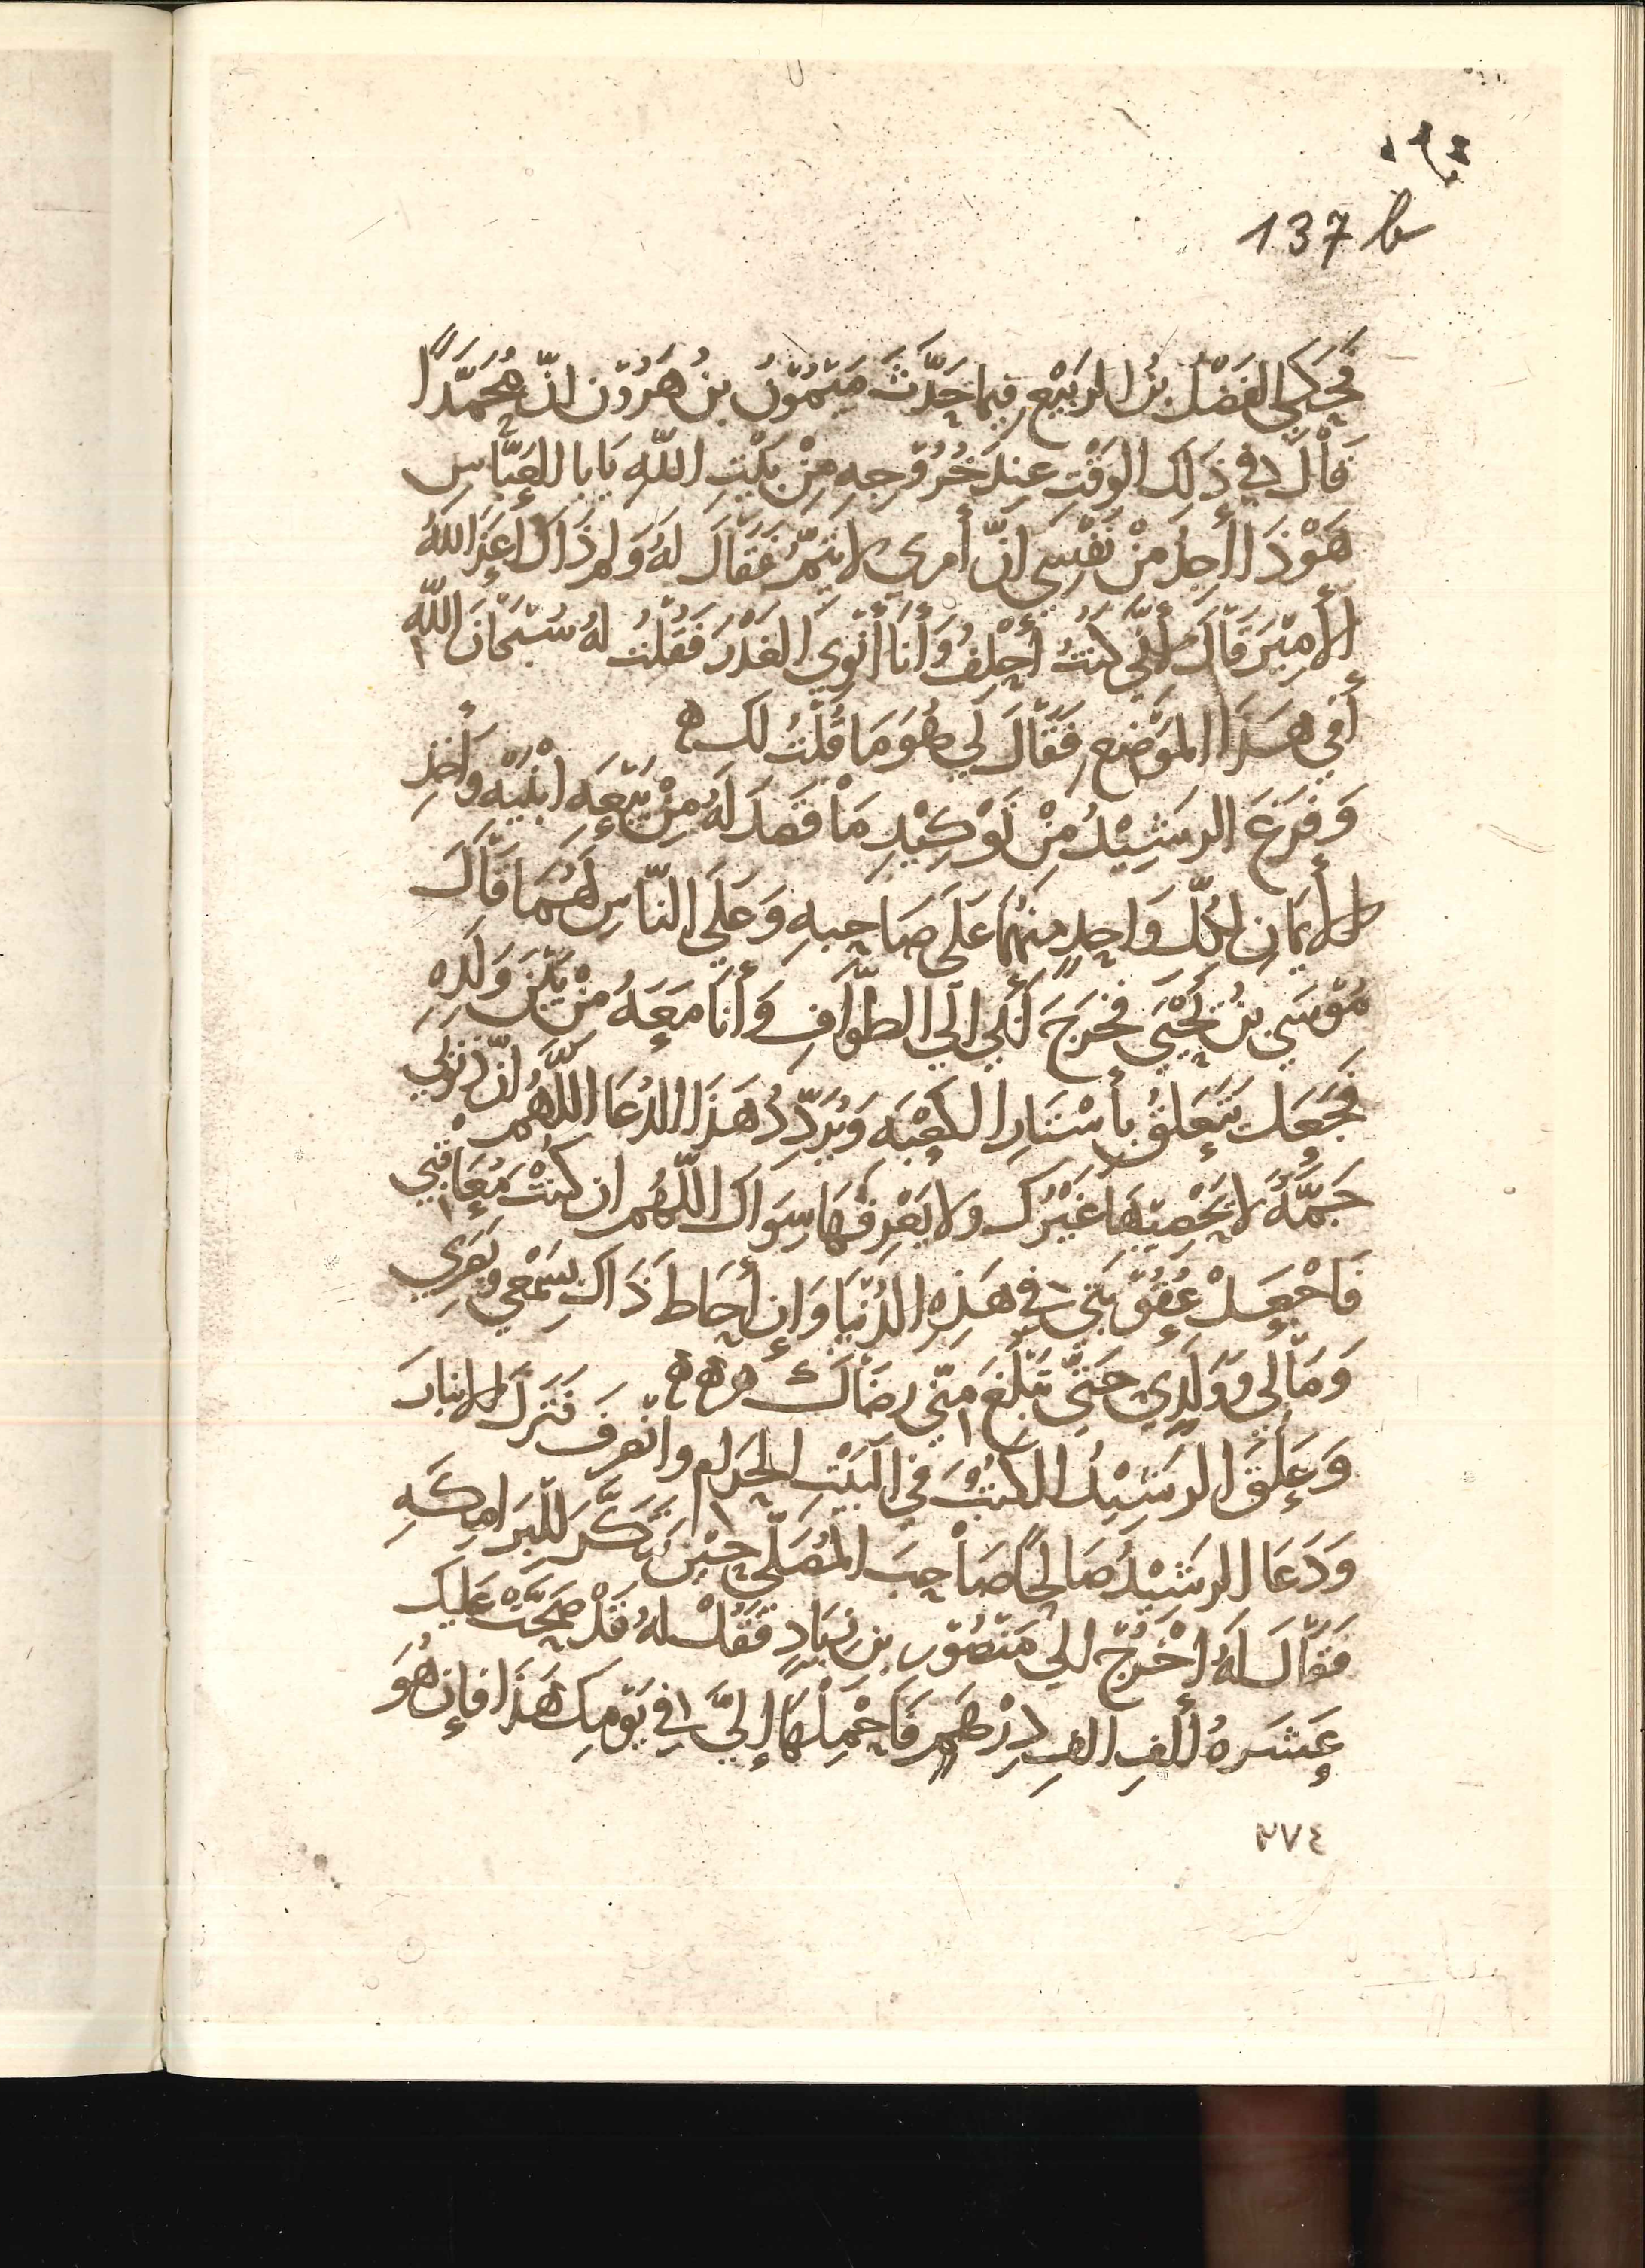 137 b
فَحَكَي الفَضْلُ بنُ الرَبيْع فيما حَدَّثَ مَيْمُوْنُ بنُ هَرُوْن انّ مُحَمَّدًا
قَالَ في ذَلِكَ الوَقْتِ عِندَ خُرُوْجِهِ مِنْ بَيْتِ اللّهِ يَابا العَبَّاسِ
هَوْذَا أجِدُ مِنْ نَفْسِي انّ أمرِي لا يَتمُّ فَقَالَ لهُ وَلِم ذَاكَ اعَزَ اللّهُ
الأمِيْرَ قَالَ لأنّي كنتُ أحْلِفُ وَأنَا أنْوِي الغَدْرَ فَقُلْتُ لهُ سُبْحَانَ اللّه
أفي هَذَا المَوْضِع فَقَالَ لي هُوَ مَا قُلْتُ لك ه
وَفَرَغَ الرشِيْدُ مِنْ تَوْكِيْدِ مَا قَصَدَ لهُ مِنْ بَيْعَه ابْنَيْه وأخذِ
الأيمَانِ لِكُلّ وَاحِدٍ منهُمَا عَلَى صَاحِبهِ وَعَلَي النّاسِ لهُمَا قَالَ
مُوْسَي بنُ يَحْيَي فخرَجَ أَبي الَي الطوَّافِ وَأنَا مَعَهُ مِنْ بَيْنِ وَلَدِهِ
فَجَعَلَ يَتَعَلقُ بأسْتَارِ الكعْبَه وَيُرَدِّدُ هَذَا الدُعَا اللّهُمّ انّ ذنوبي
جَمَّةٌ لا يُحْصِيْهَا غَيْرُكَ وَلا يَعْرِفُهَا سِوَاكَ اللّهُم ان كنْتَ مُعَاقبي
فَاجْعَلْ عُقُوْبَتي في هَذِهِ الدُنْيَا وَإن أحَاطَ ذَاك بِسَمْعي وبَصَري
وَمَالي وَوَلَدِي حَتَّي تَبْلُغَ مِنّي رضَاكَ ه ه ه
وَعَلقَ الرشِيْدُ الكتُبَ في البَيْتِ الحَرَام وانْصَرفَ فَنَزَلَ الانبارَ
وَدَعَا الرشِيْدُ صَالِحًا صَاحِبَ المُصَلّي حِيْنَ تنَكَّرَ للبَرَامِكَهِ
فَقَالَ لهُ اخْرُجْ الي مَنصُوْرِ بن زيَادٍ فَقُلْ لهُ قَدْ صَحَّتْ عَليك
عَشرَةُ ألفِ الفِ دِرْهَمٍ فَاحْمِلهَا إليَّ في يَوْمِكَ هَذَا فإن هُوَ
٢٧٤